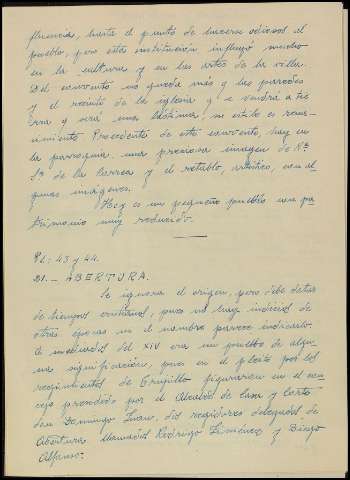 fluencia, hasta el punto de hacerse odiosos al
pueblo, pero esta institución influyó mucho
en la cultura y en las artes de la villa.
Del convento no queda más q las paredes
y el recinto de la iglesia y se vendrá a tie
rra y será una lástima, su estilo es rena-
cimiento. Procedente de este convento, hay en
la parroquia, una preciosa imagen de Nª
Sª de la Correa y el retablo, artístico, con al-
gunas imágenes.
Hoy es un pequeño pueblo con pa-
trimonio muy reducido.
Pl: 43 y 44.
21.- ABERTURA.
Se ignora el origen, pero debe datar
de tiempos cristianos, pues no hay indicios de
otras épocas ni el nombre parece indicarlo.
A mediados del XIV era un pueblo de algu-
na significación, pues en el pleito por los
regimientos de Trujillo figuraron en el con-
cejo presidido por el Alcalde de Casa y Corte
don Domingo Juan, dos regidores delegados de
Abertura llamados Rodrigo Ximénez y Diego
Alfonso.